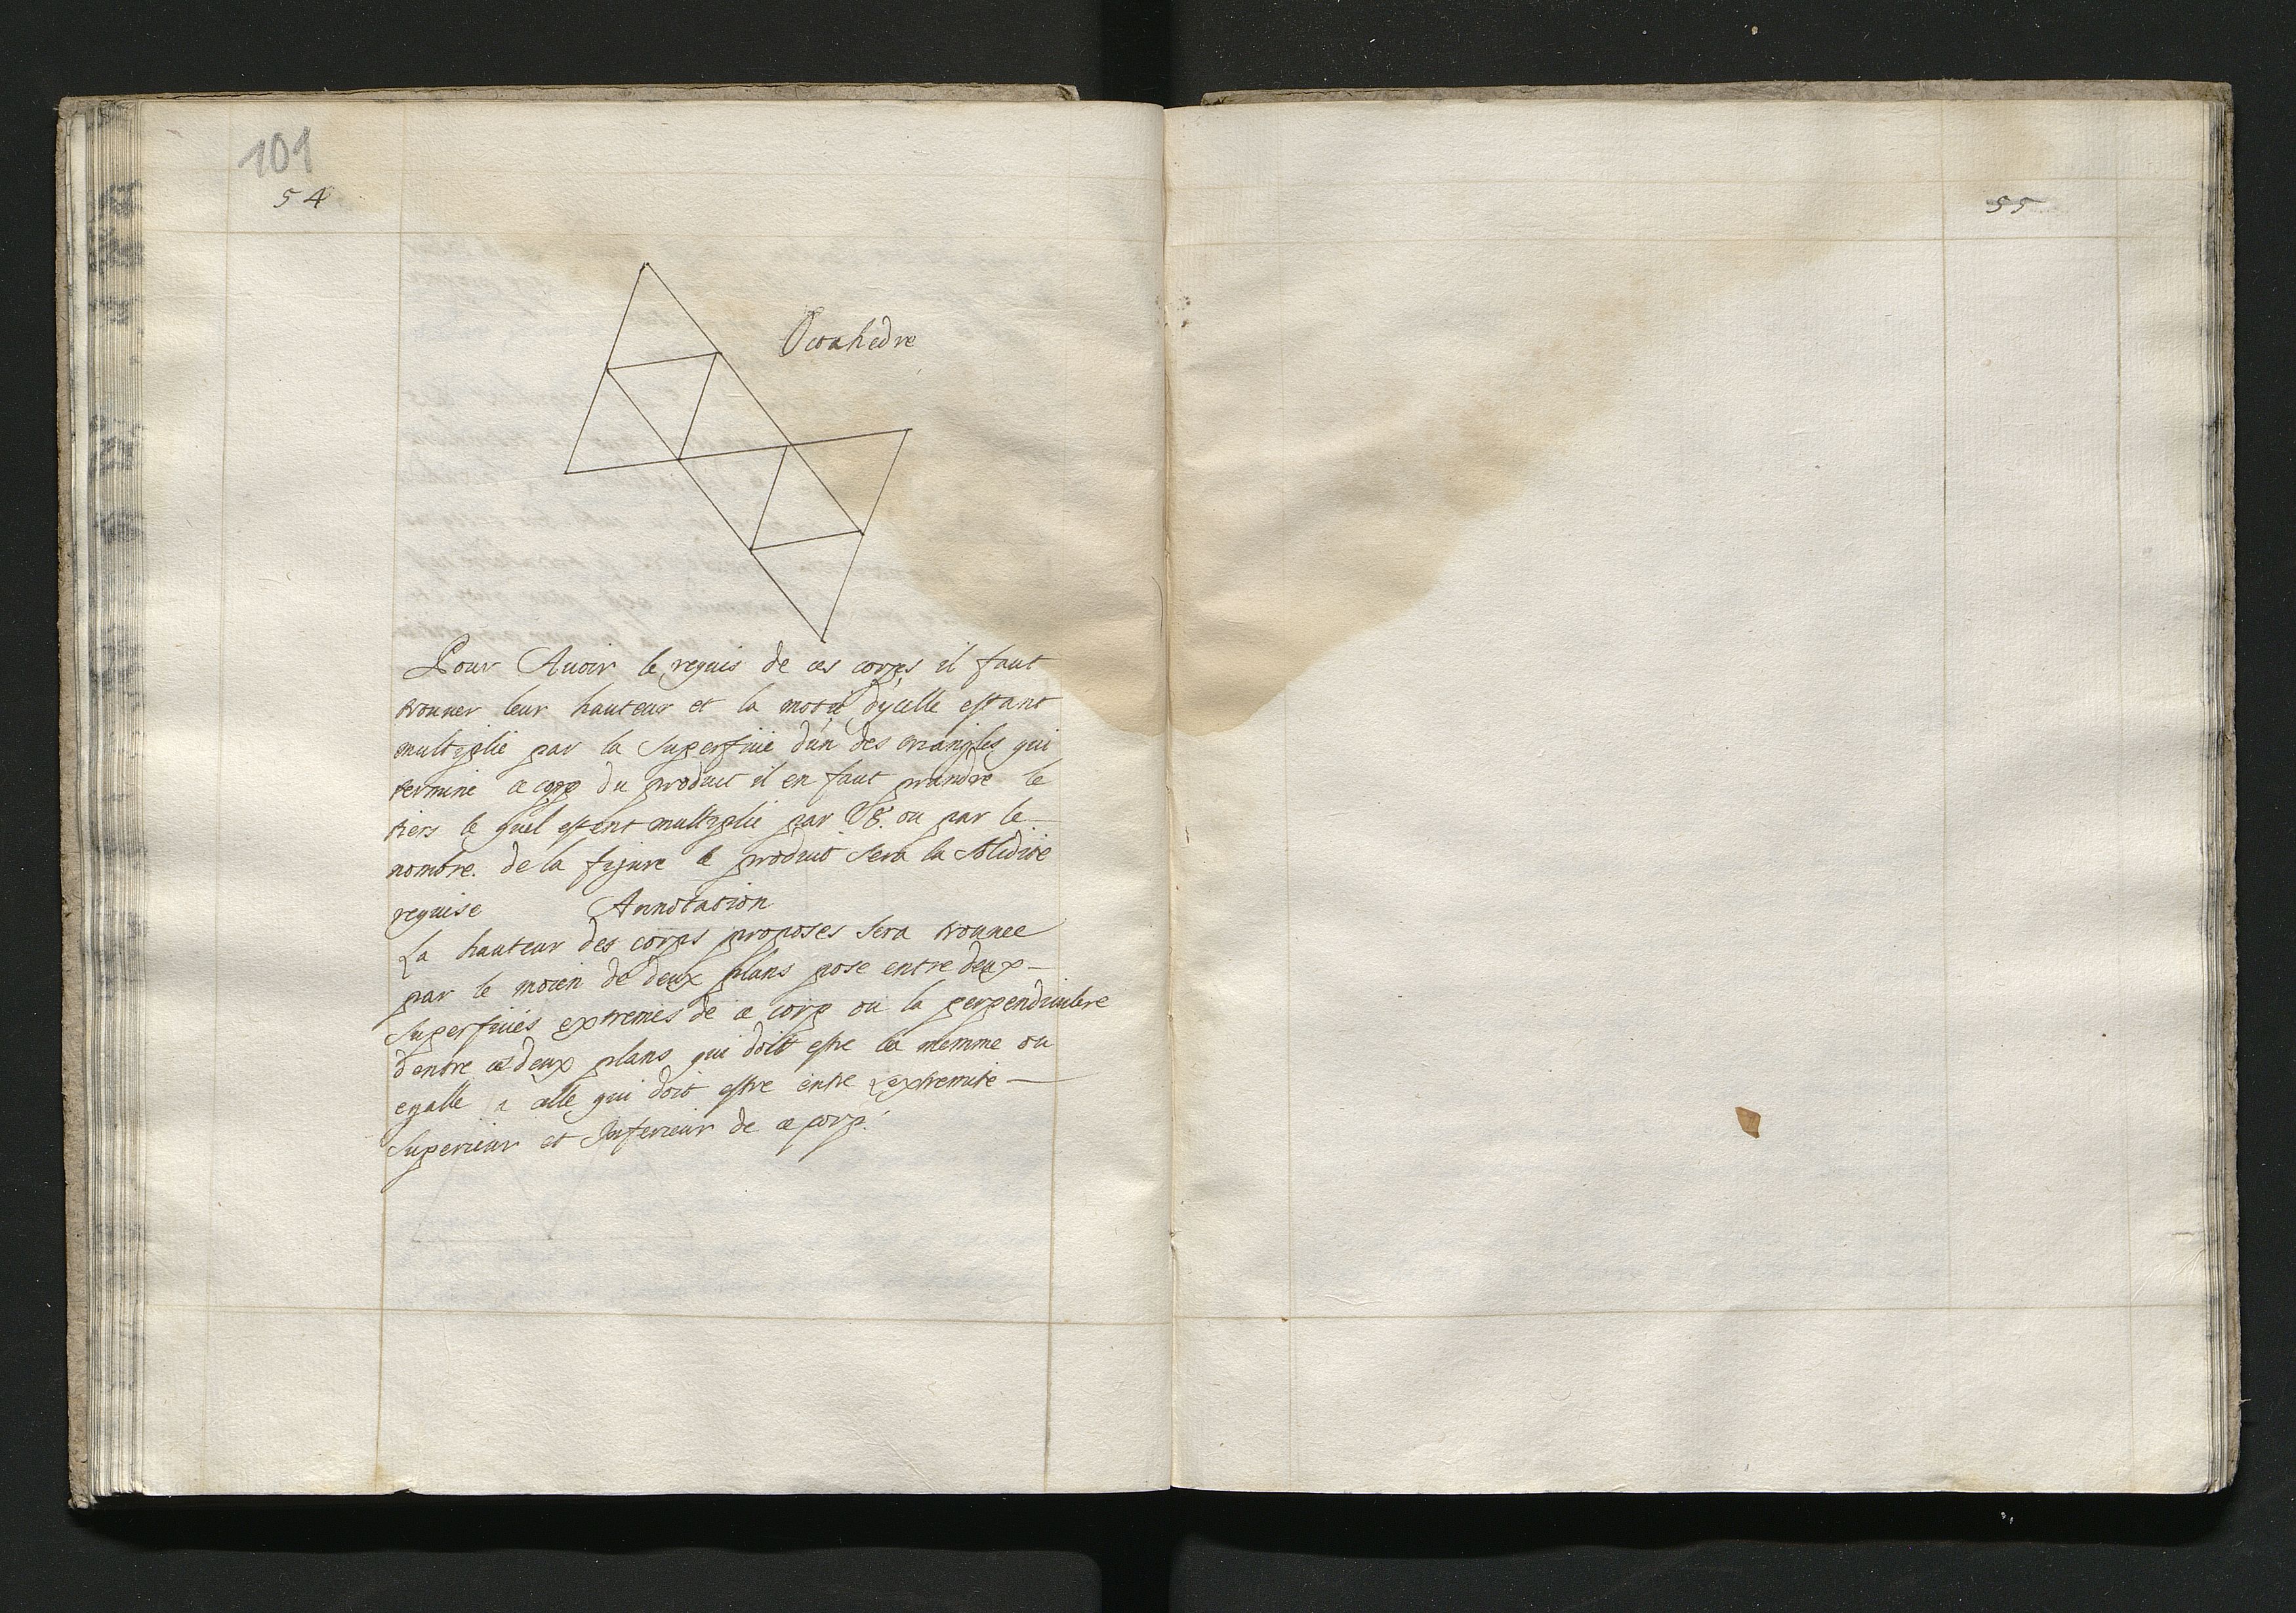 101
54
55
Octahedre
Pour Auoir le requis de ces corps il faut
trouuer leur hauteur et la motié d'ycelle estant
multyplié par la superficie d'un des triangles qui
terminé ce corp du produit il en faut prandre le
tiers le quel estent multyplié par 8. ou par le
nombre. de la figure le produit sera la solidité
requise Annotation
La hauteur des corps proposés sera trouuee
par le moien de deux plans posé entre deux
superficiés extremes de ce corp ou la perpendiculere
d'entre ces deux plans qui doit estre la memme ou
egalle a celle qui doit estre entre Lextremité
superieur et Inferieur de ce corp.